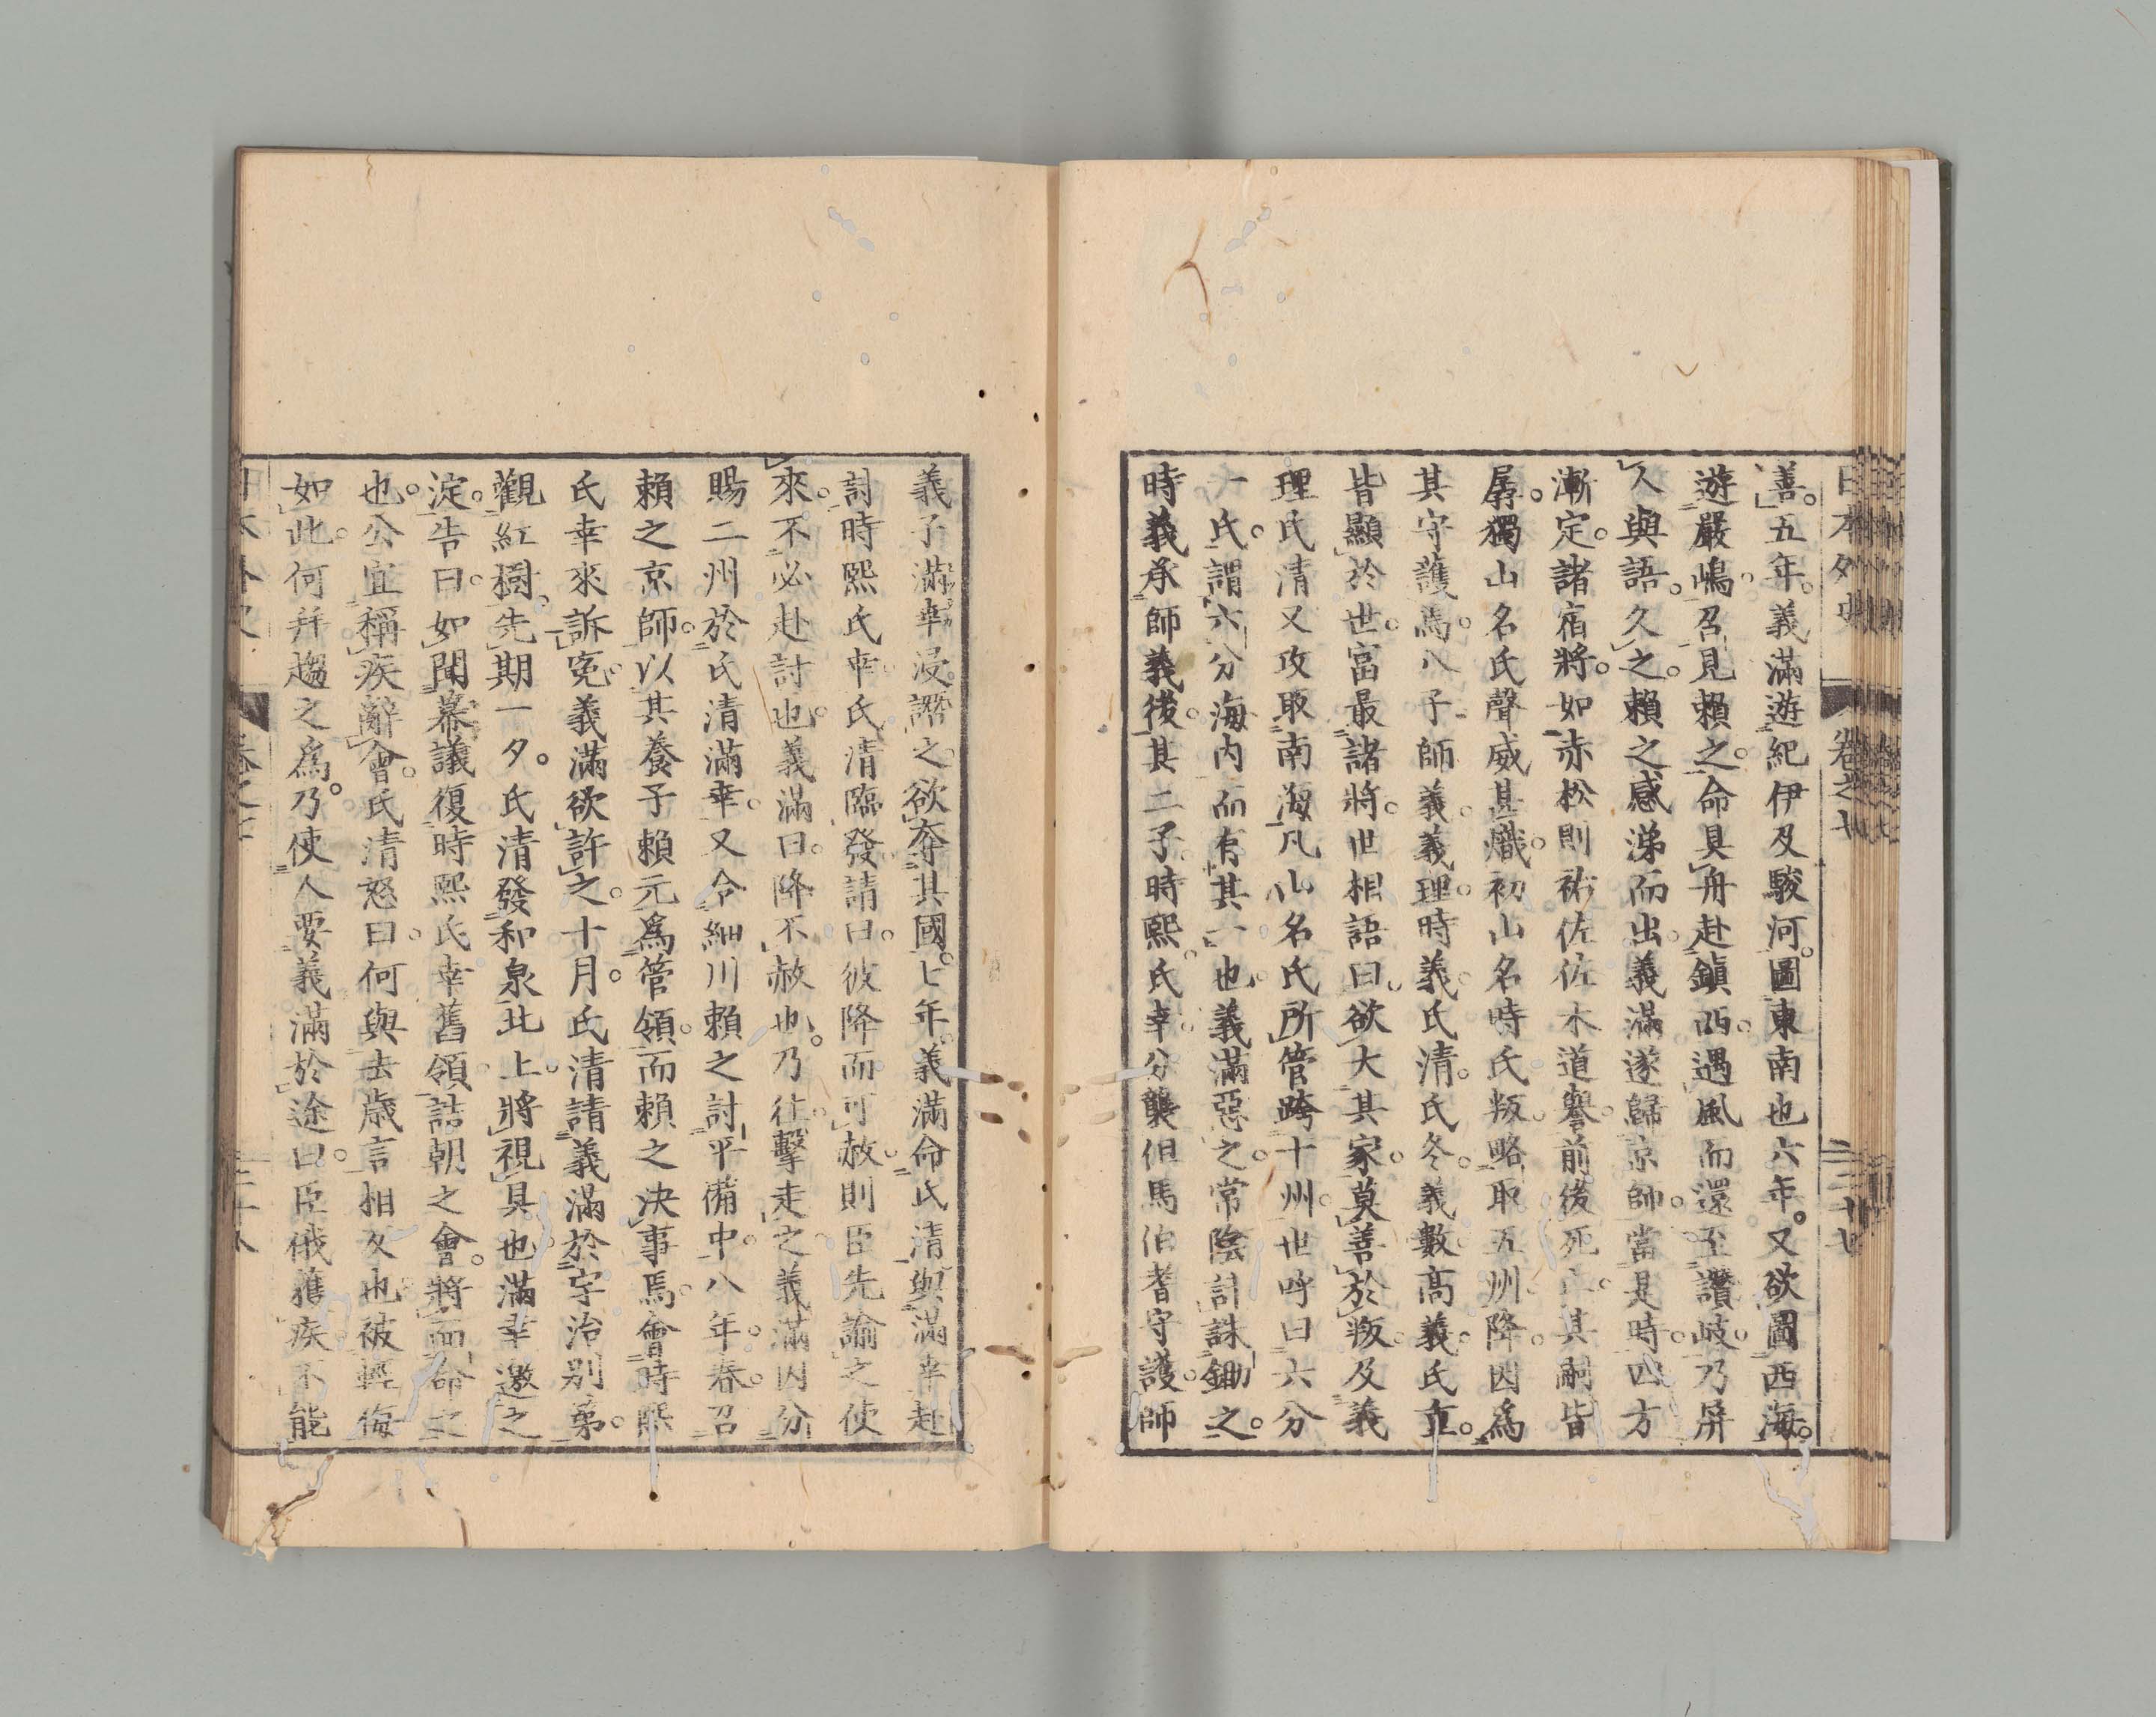 日本外史 卷之七 二十七
善。五年。義滿遊紀伊及駿河。圖東南也六年。又欲圖西海。
遊嚴嶋。召見賴之。命具舟赴鎭西。遇風而還至讚岐。乃屏
人與語。久之。賴之感涕而出。義滿遂歸京師。當是時。四方
漸定。諸宿將。如赤松則祐佐佐木道譽。前後死亡。其嗣皆
孱。獨山名氏聲威甚熾。初山名時氏叛。略取五州。降。因爲
其守護焉。八子。師義。義理。時義。氏清。氏冬。義數高義。氏重。
皆顯於世。富最諸將。世相語曰。欲大其家。莫善於叛。及義
理氏清又攻取南海。凡山名氏所管跨十州。世呼曰六分
一氏。謂六分海內而有其一也。義滿惡之。常陰計誅鋤之。
時義承師義後。其二子。時熙。氏幸。分襲伯馬伯耆守護。師
義子滿幸浸譖之。欲奪其國。七年。義滿命氏清與滿幸赴
討時熙氏幸。氏清臨發。請曰。彼降而可赦。則臣先諭之使
來。不必赴討也。義滿曰。降不赦也。乃往擊走之。義滿因分
賜二州於氏清滿幸。又令細川賴之討平備中。八年。春。召
賴之京師。以其養子賴元爲管領。而賴之決事焉。會時熙
氏幸來訴寃。義滿欲許之。十月。氏清請義滿於宇治別第。
觀紅樹。先期一夕。氏清發和泉北上。將視具也。滿幸邀之
淀。告曰。如聞幕議復時熙氏幸舊領。詰朝之會。將面命之
也。公宜稱疾辭會。氏清怒曰。何與去歲言相反也。被輕侮
如此。何幷趨之爲。乃使人要義滿於途曰。臣俄獲疾不能
日本外史 卷之七 二十八